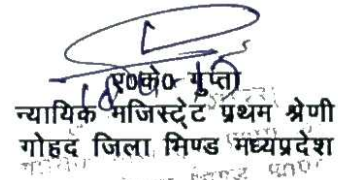 ए०के० गुप्ता
न्यायिक मजिस्ट्रेट प्रथम श्रेणी
गोहद जिला भिण्ड मध्यप्रदेश